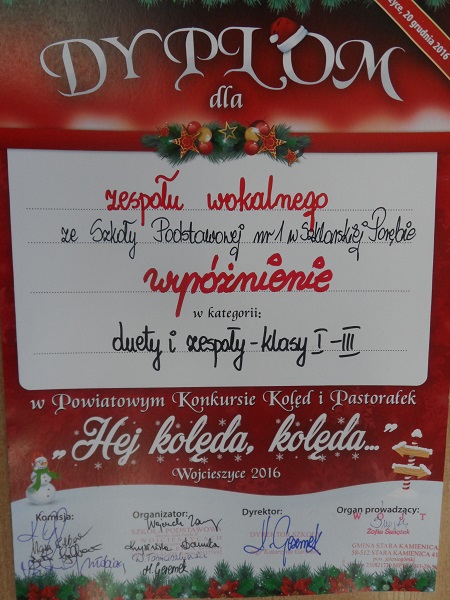 yce, 20 grudnia 2016
DYPLOM
dla
zespołu wokalnego
ze Szkoły Podstawowej nr 1 w Szklarskiej Porębie
wypóżnienie
w kategorii:
duety i zespoły - klasy I - III
w Powiatowym Konkursie Kolęd i Pastorałek
„Hej kolęda, kolęda..."
Wojcieszyce 2016
Komisja: Organizator: Dyrektor: Organ prowadzący:
WÓJT
Zofia Świątek
H. Geremek
GMINA STARA KAMIENICA